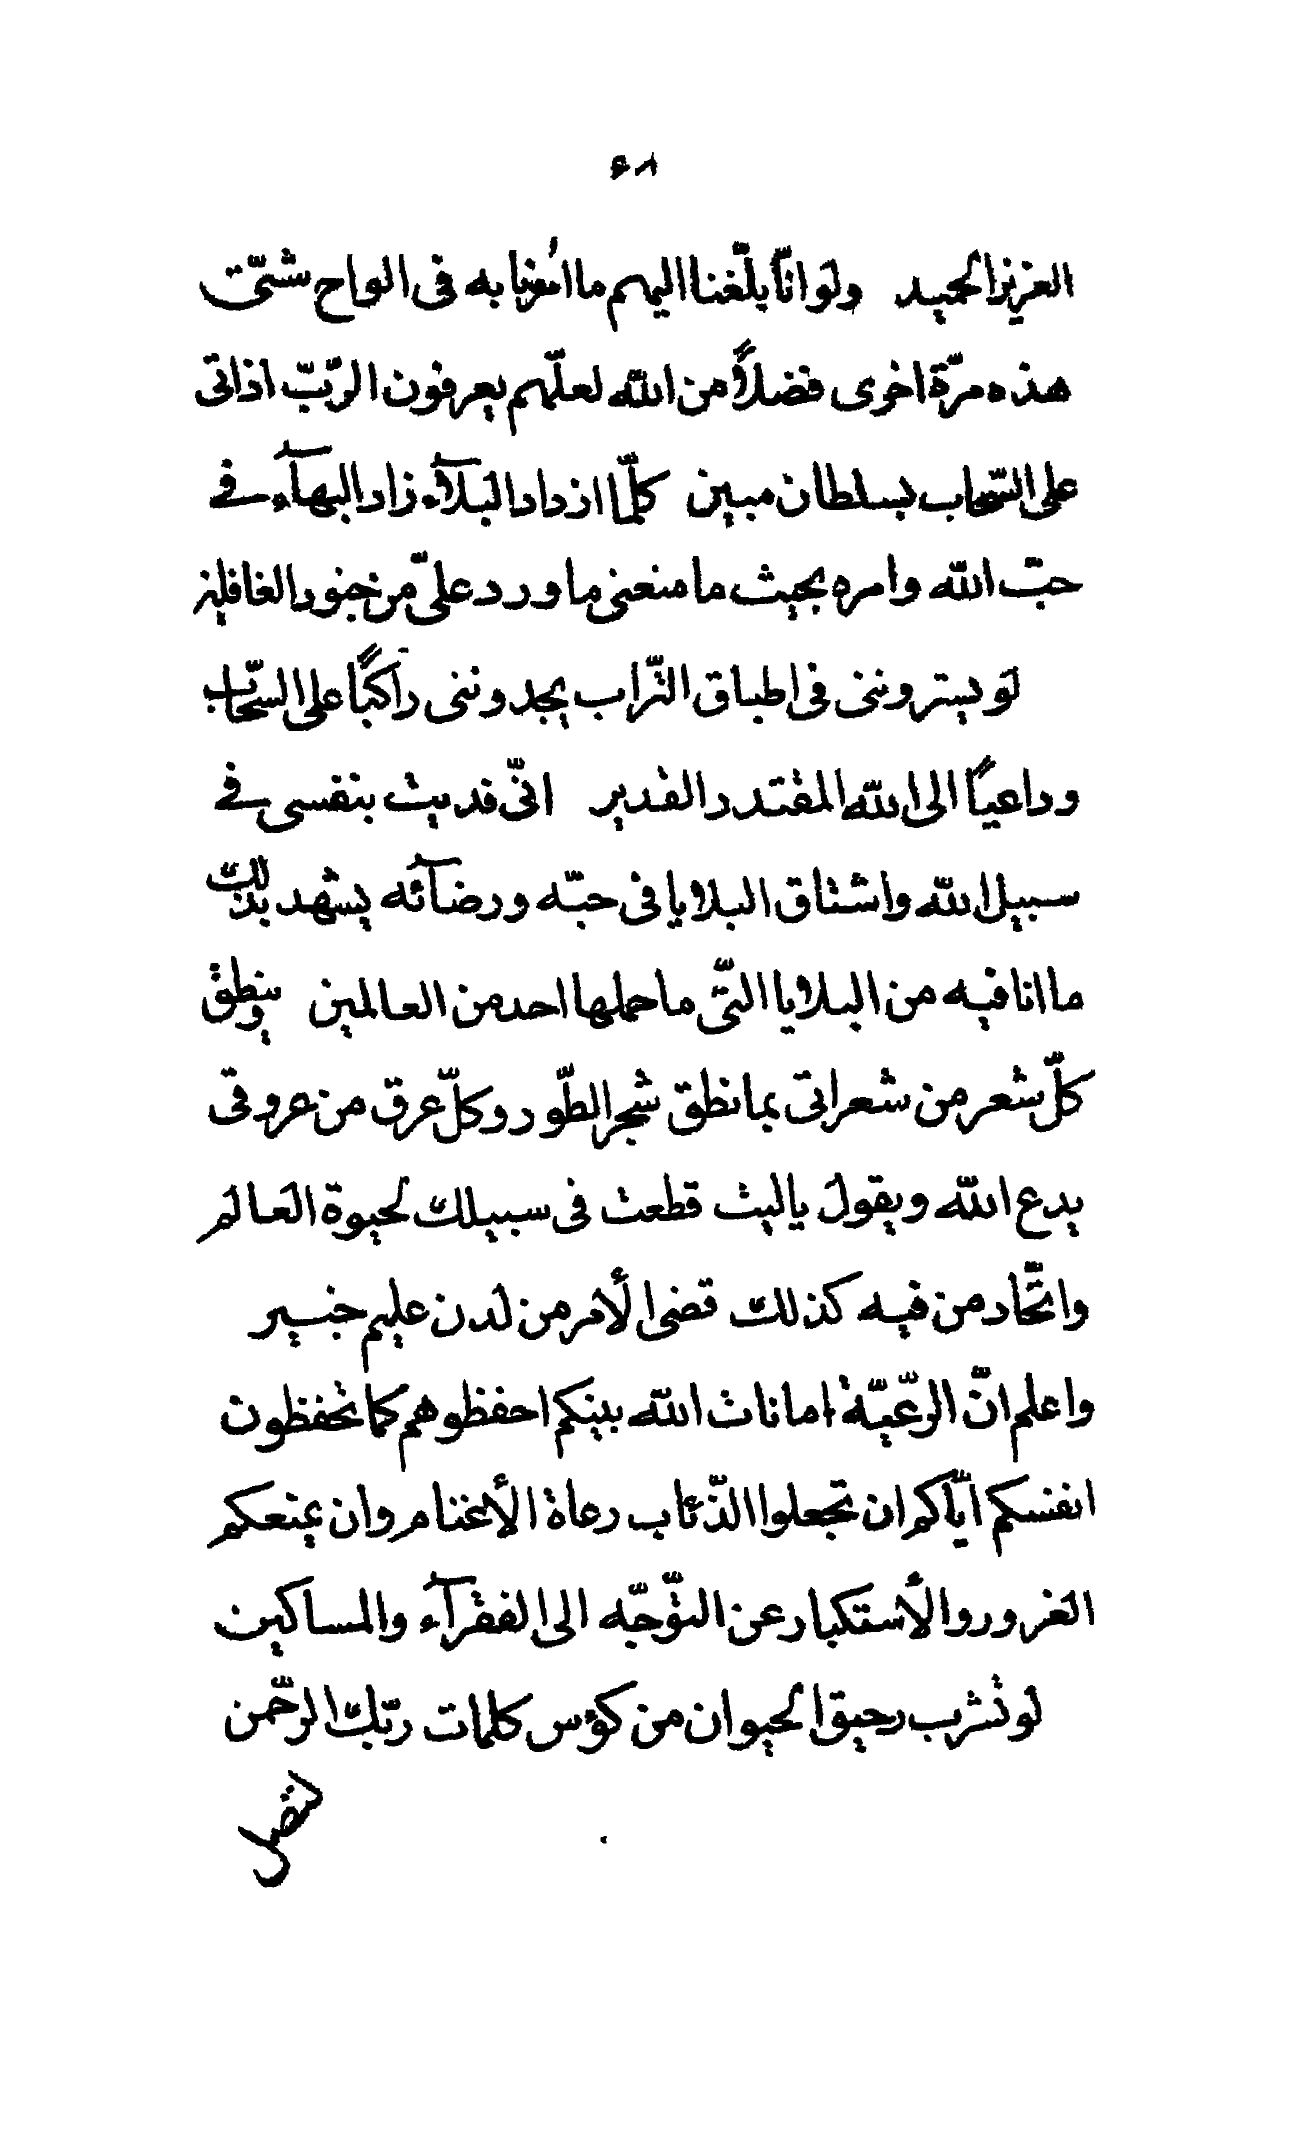 ٤٨
العزيز الحميد ولو انّا بلّغنا اليهم ما اُمرنا به فى الواح شتّى
هذه مرّة اخرى فضلاً من الله لعلّهم يعرفون الربّ اذ اتى
على السّحاب بسلطان مبين كلّما ازداد البلآء زاد البهآء فى
حبّ الله وامره بحيث ما منعنى ما ورد علىّ من جنود الغافلين
لو يسترونى فى اطباق التّراب يجدوننى راكبًا على السّحاب
وداعيًا الى الله المقتدر القدير انّى فديت بنفسى فى
سبيل الله واشتاق البلايا فى حبّه ورضآئه يشهد بذلك
ما انا فيه من البلايا الّتى ما حملها احد من العالمين وينطق
كلّ شعر من شعراتى بما نطق شجر الطّور وكلّ عرق من عروقى
يدع الله ويقول ياليت قطعت فى سبيلك لحيوة العالم
واتّحاد من فيه كذلك قضى الأمر من لدن عليم خبير
واعلم انّ الرّعيّة امانات الله بينكم احفظوهم كما تحفظون
انفسكم ايّاكم ان تجعلوا الذّئاب رعاة الأغنام وان يمنعكم
الغرور والأستكبار عن التوّجّه الى الفقرآء والمساكين
لو تشرب رحيق الحيوان من كؤس كلمات ربّك الرحّمن
لتصل